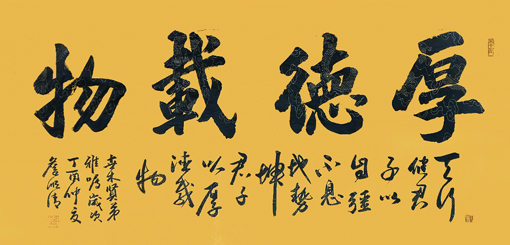 厚德載物
天行
健君
子以
自彊
不息
地勢
坤
君子
以厚
德載
物
賢弟
雅囑歲次
丁酉仲夏